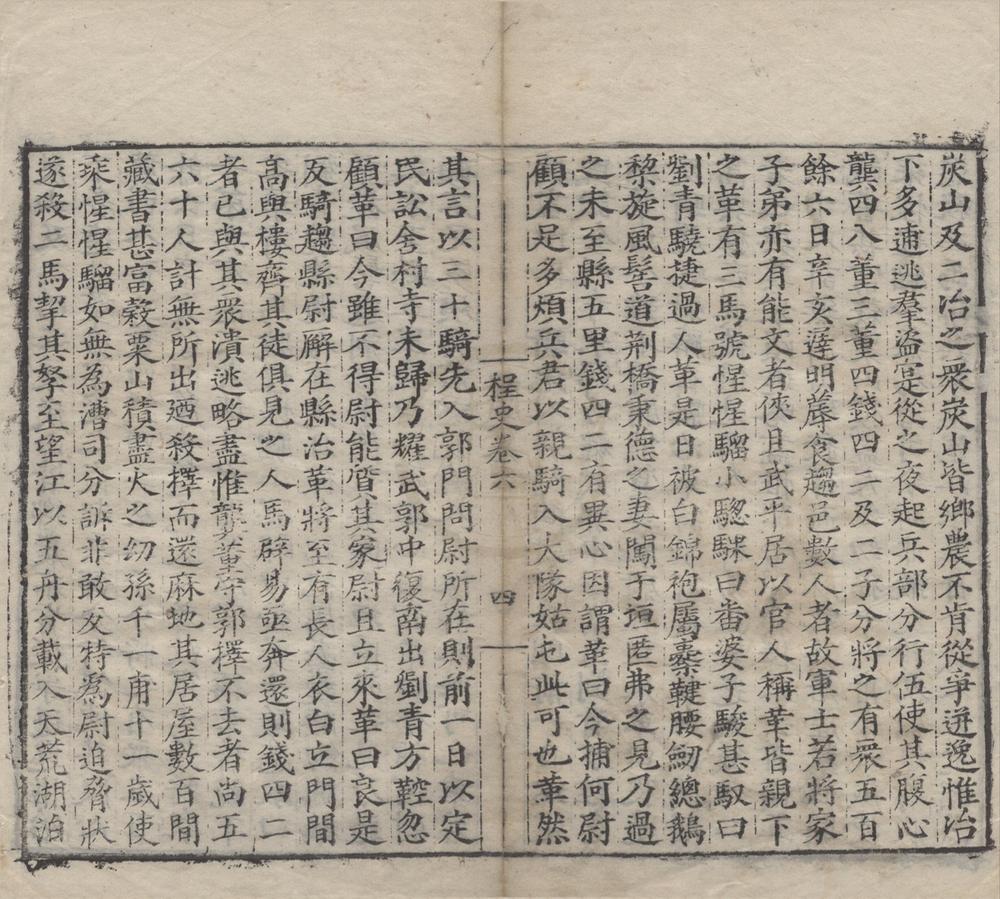 炭山及二冶之衆炭山皆鄉農不肯從爭迸逸惟冶
下多逋逃羣盜寔從之夜起兵部分行伍使其腹心
龔四八董三董四錢四二及二子分將之有衆五百
餘六日辛亥遲明蓐食趨邑數人者故軍士若將家
子弟亦有能文者俠且武平居以官人稱革皆親下
之革有三馬號惺惺騮小驄騍曰番婆子駿甚馭曰
劉青驍捷過人革是日被白錦袍屬櫜鞬腰劒總鵝
黎旋風髻道荆橋秉德之妻闖于垣匿弗之見乃過
之未至縣五里錢四二有異心因謂革曰今捕何尉
顧不足多煩兵君以親騎入大隊姑屯此可也革然
桯史卷六
四
其言以三十騎先入郭門問尉所在則前一日以定
民訟舍村寺未歸乃耀武郭中復南出劉青方鞚忽
顧革曰今雖不得尉能㫺其家尉且立來革曰良是
反騎趨縣尉廨在縣治革將至有長人衣白立門間
高與樓齊其徒俱見之人馬辟易亟奔還則錢四二
者已與其衆潰逃略盡惟龔董守郭擇不去者尚五
六十人計無所出廼殺擇而還麻地其居屋數百間
藏書甚富榖粟山積盡火之幼孫千一甫十一歲使
乘惺惺騮如無為漕司分訴非敢反特爲尉迫脅狀
遂殺二馬挈其孥至望江以五舟分載入天荒湖泊